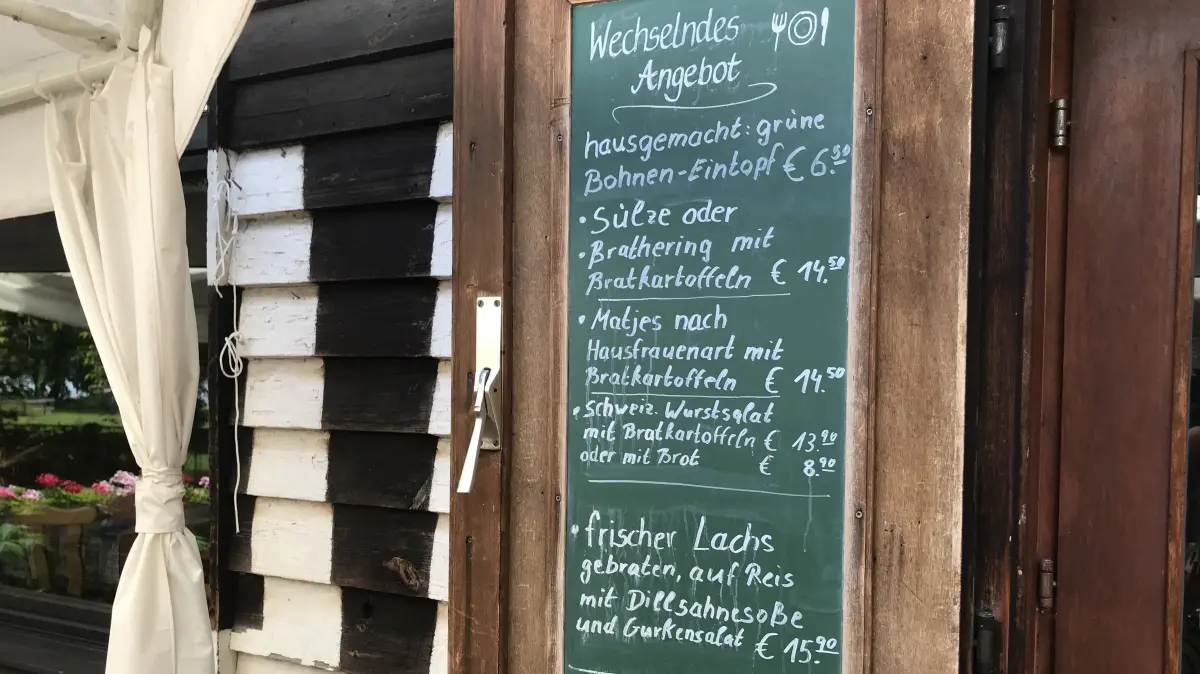 Wechselndes
Angebot
hausgemacht: grüne
Bohnen-Eintopf € 6.50
• Sülze oder
• Brathering mit
Bratkartoffeln € 14.50
• Matjes nach
Hausfrauenart mit
Bratkartoffeln € 14.50
• Schweiz. Wurstsalat
mit Bratkartoffeln € 13.90
oder mit Brot € 8.90
• frischer Lachs
gebraten, auf Reis
mit Dillsahnesoße
und Gurkensalat € 15.90